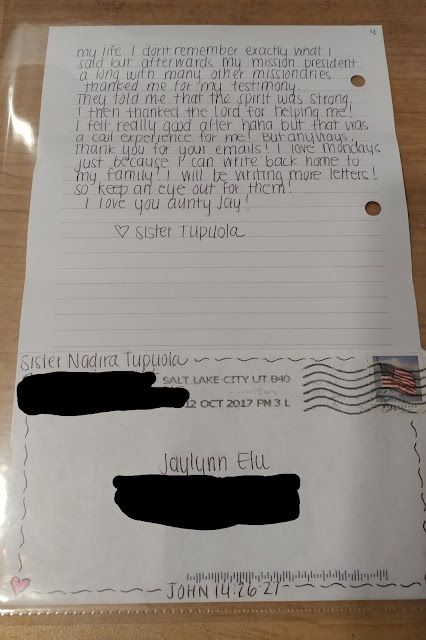 4
my life. I dont remember exactly what I
said but afterwards my mission president
a long with many other missionaries
thanked me for my testimony.
They told me that the spirit was strong.
I then thanked the Lord for helping me!
I felt really good after haha but that was
a cool experience for me! But anyways,
thank you for your emails! I love mondays
just because I can write back home to
my family! I will be writing more letters!
so keep an eye out for them!
I love you aunty Jay!
♡ Sister Tupuola
Sister Nadira Tupuola
SALT LAKE CITY UT 840
12 OCT 2017 PM 3 L
Jaylynn Elu
JOHN 14:26-27